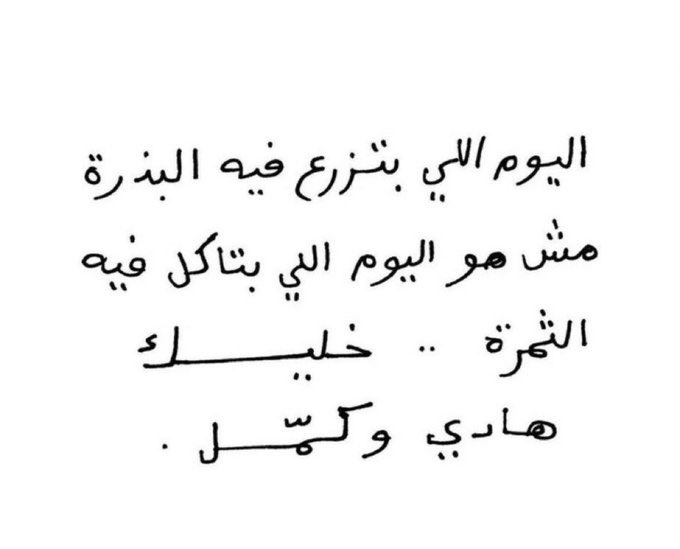 اليوم اللي بتزرع فيه البذرة
مش هو اليوم اللي بتاكل فيه
الثمرة .. خليـــــك
هادي وكمّـــل .